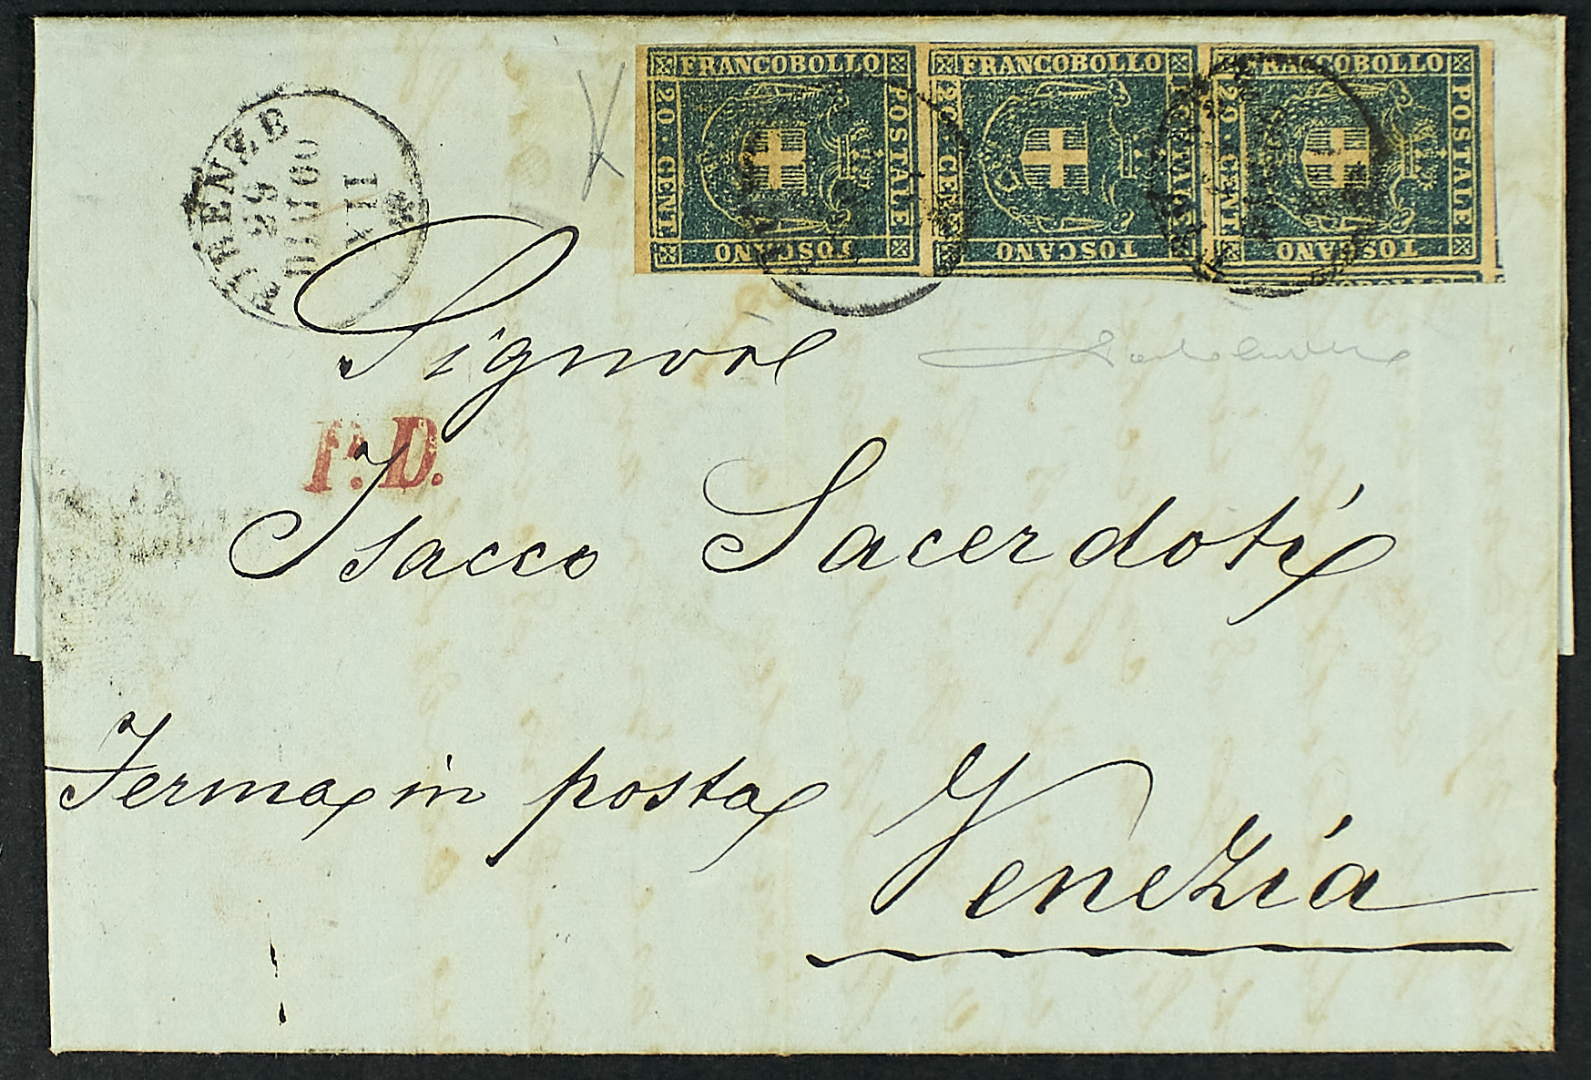 FRANCOBOLLO POSTALE TOSCANO 20 CENT
FRANCOBOLLO POSTALE TOSCANO 20 CENT
FRANCOBOLLO POSTALE TOSCANO 20 CENT
FIRENZE
29
XII
Signore
P.D.
Isacco Sacerdoti
Ferma in posta
Venezia